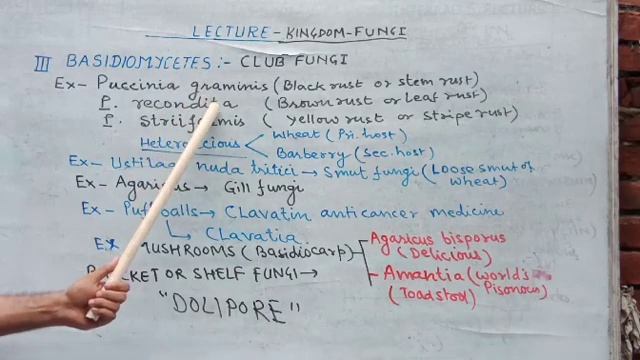 LECTURE - KINGDOM - FUNGI
III BASIDIOMYCETES :- CLUB FUNGI
Ex- Puccinia graminis (Black rust or stem rust)
P. recondita (Brown rust or Leaf rust)
P. Striiformis (Yellow rust or Stripe rust)
Heteroecious Wheat (Pri. host)
Barberry (Sec. host)
Ex- Ustilago nuda tritici → Smut fungi (Loose smut of wheat)
Ex- Agaricus → Gill fungi
Ex- Puffballs → Clavatin anticancer medicine
Clavatia
Ex MUSHROOMS (Basidiocarp) Agaricus bisporus (Delicious)
Amantia (world's Pisonous) (Toadstool)
BRACKET OR SHELF FUNGI →
"DOLIPORE"